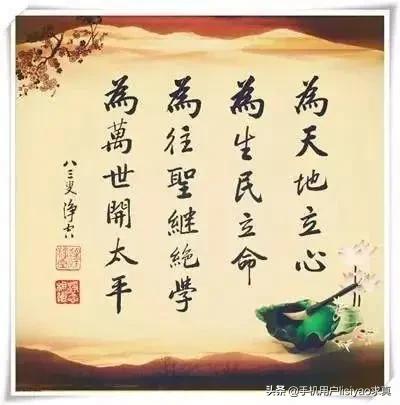 為天地立心
為生民立命
為往聖繼絕學
為萬世開太平
八三叟淨空
头条 @手机用户lisiyao求真